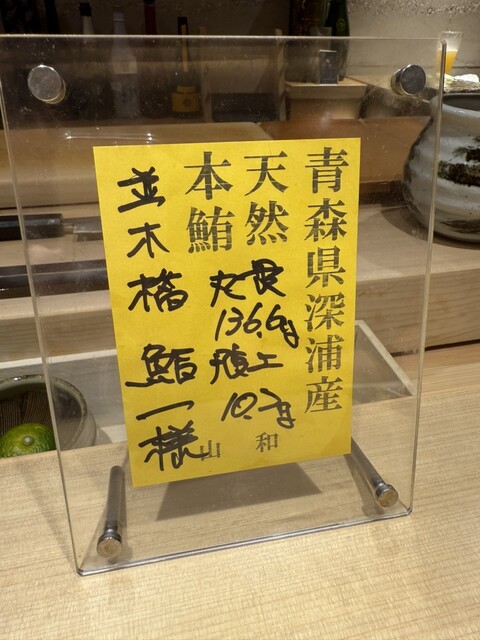 青森県深浦産
天然
本鮪
丸
136.6
腹上
10.2
山和
並木橋
鮨一様